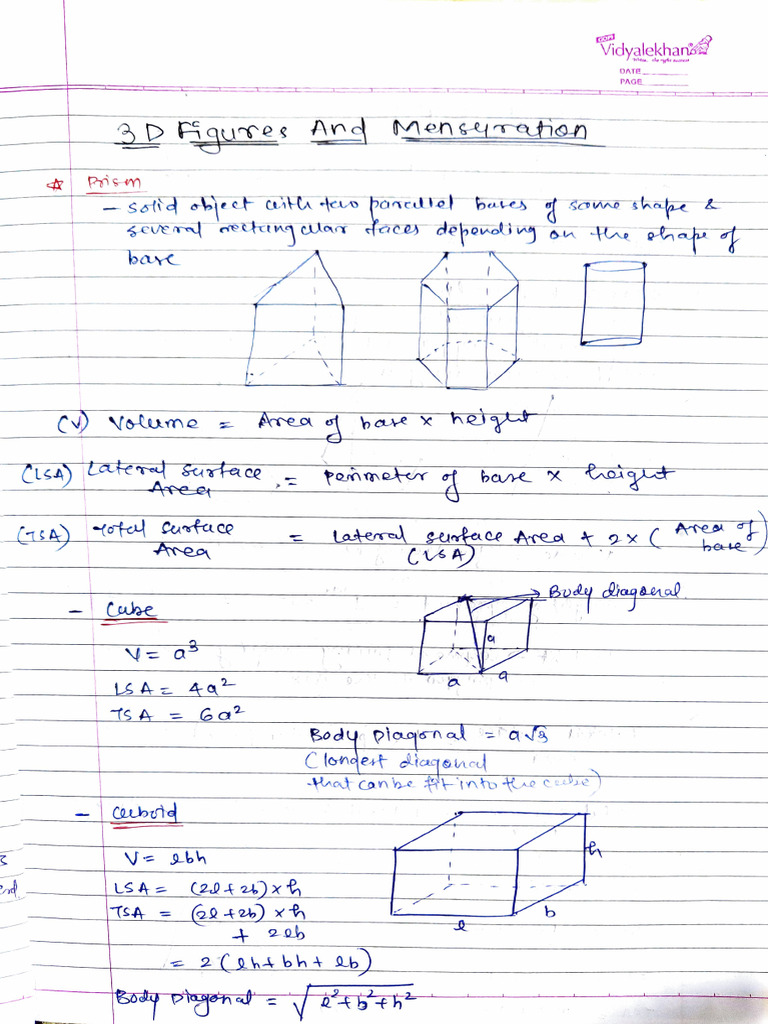 GOPI
Vidyalekhan
DATE
PAGE
3D Figures And Mensuration
Prism
- solid object with two parallel bases of same shape &
several rectangular faces depending on the shape of
base
(V) Volume = Area of base × height
(LSA) Lateral Surface Area = perimeter of base × height
(TSA) Total surface Area = Lateral surface Area + 2 × (Area of base)
(LSA)
- Cube
Body diagonal
V = a³
a
a
a
LSA = 4a²
TSA = 6a²
Body Diagonal = a√3
(longest diagonal
that can be fit into the cube)
- Cuboid
V = lbh
h
LSA = (2l + 2b) × h
TSA = (2l + 2b) × h
b
l
+ 2lb
= 2(lh + bh + lb)
Body Diagonal = √l² + b² + h²